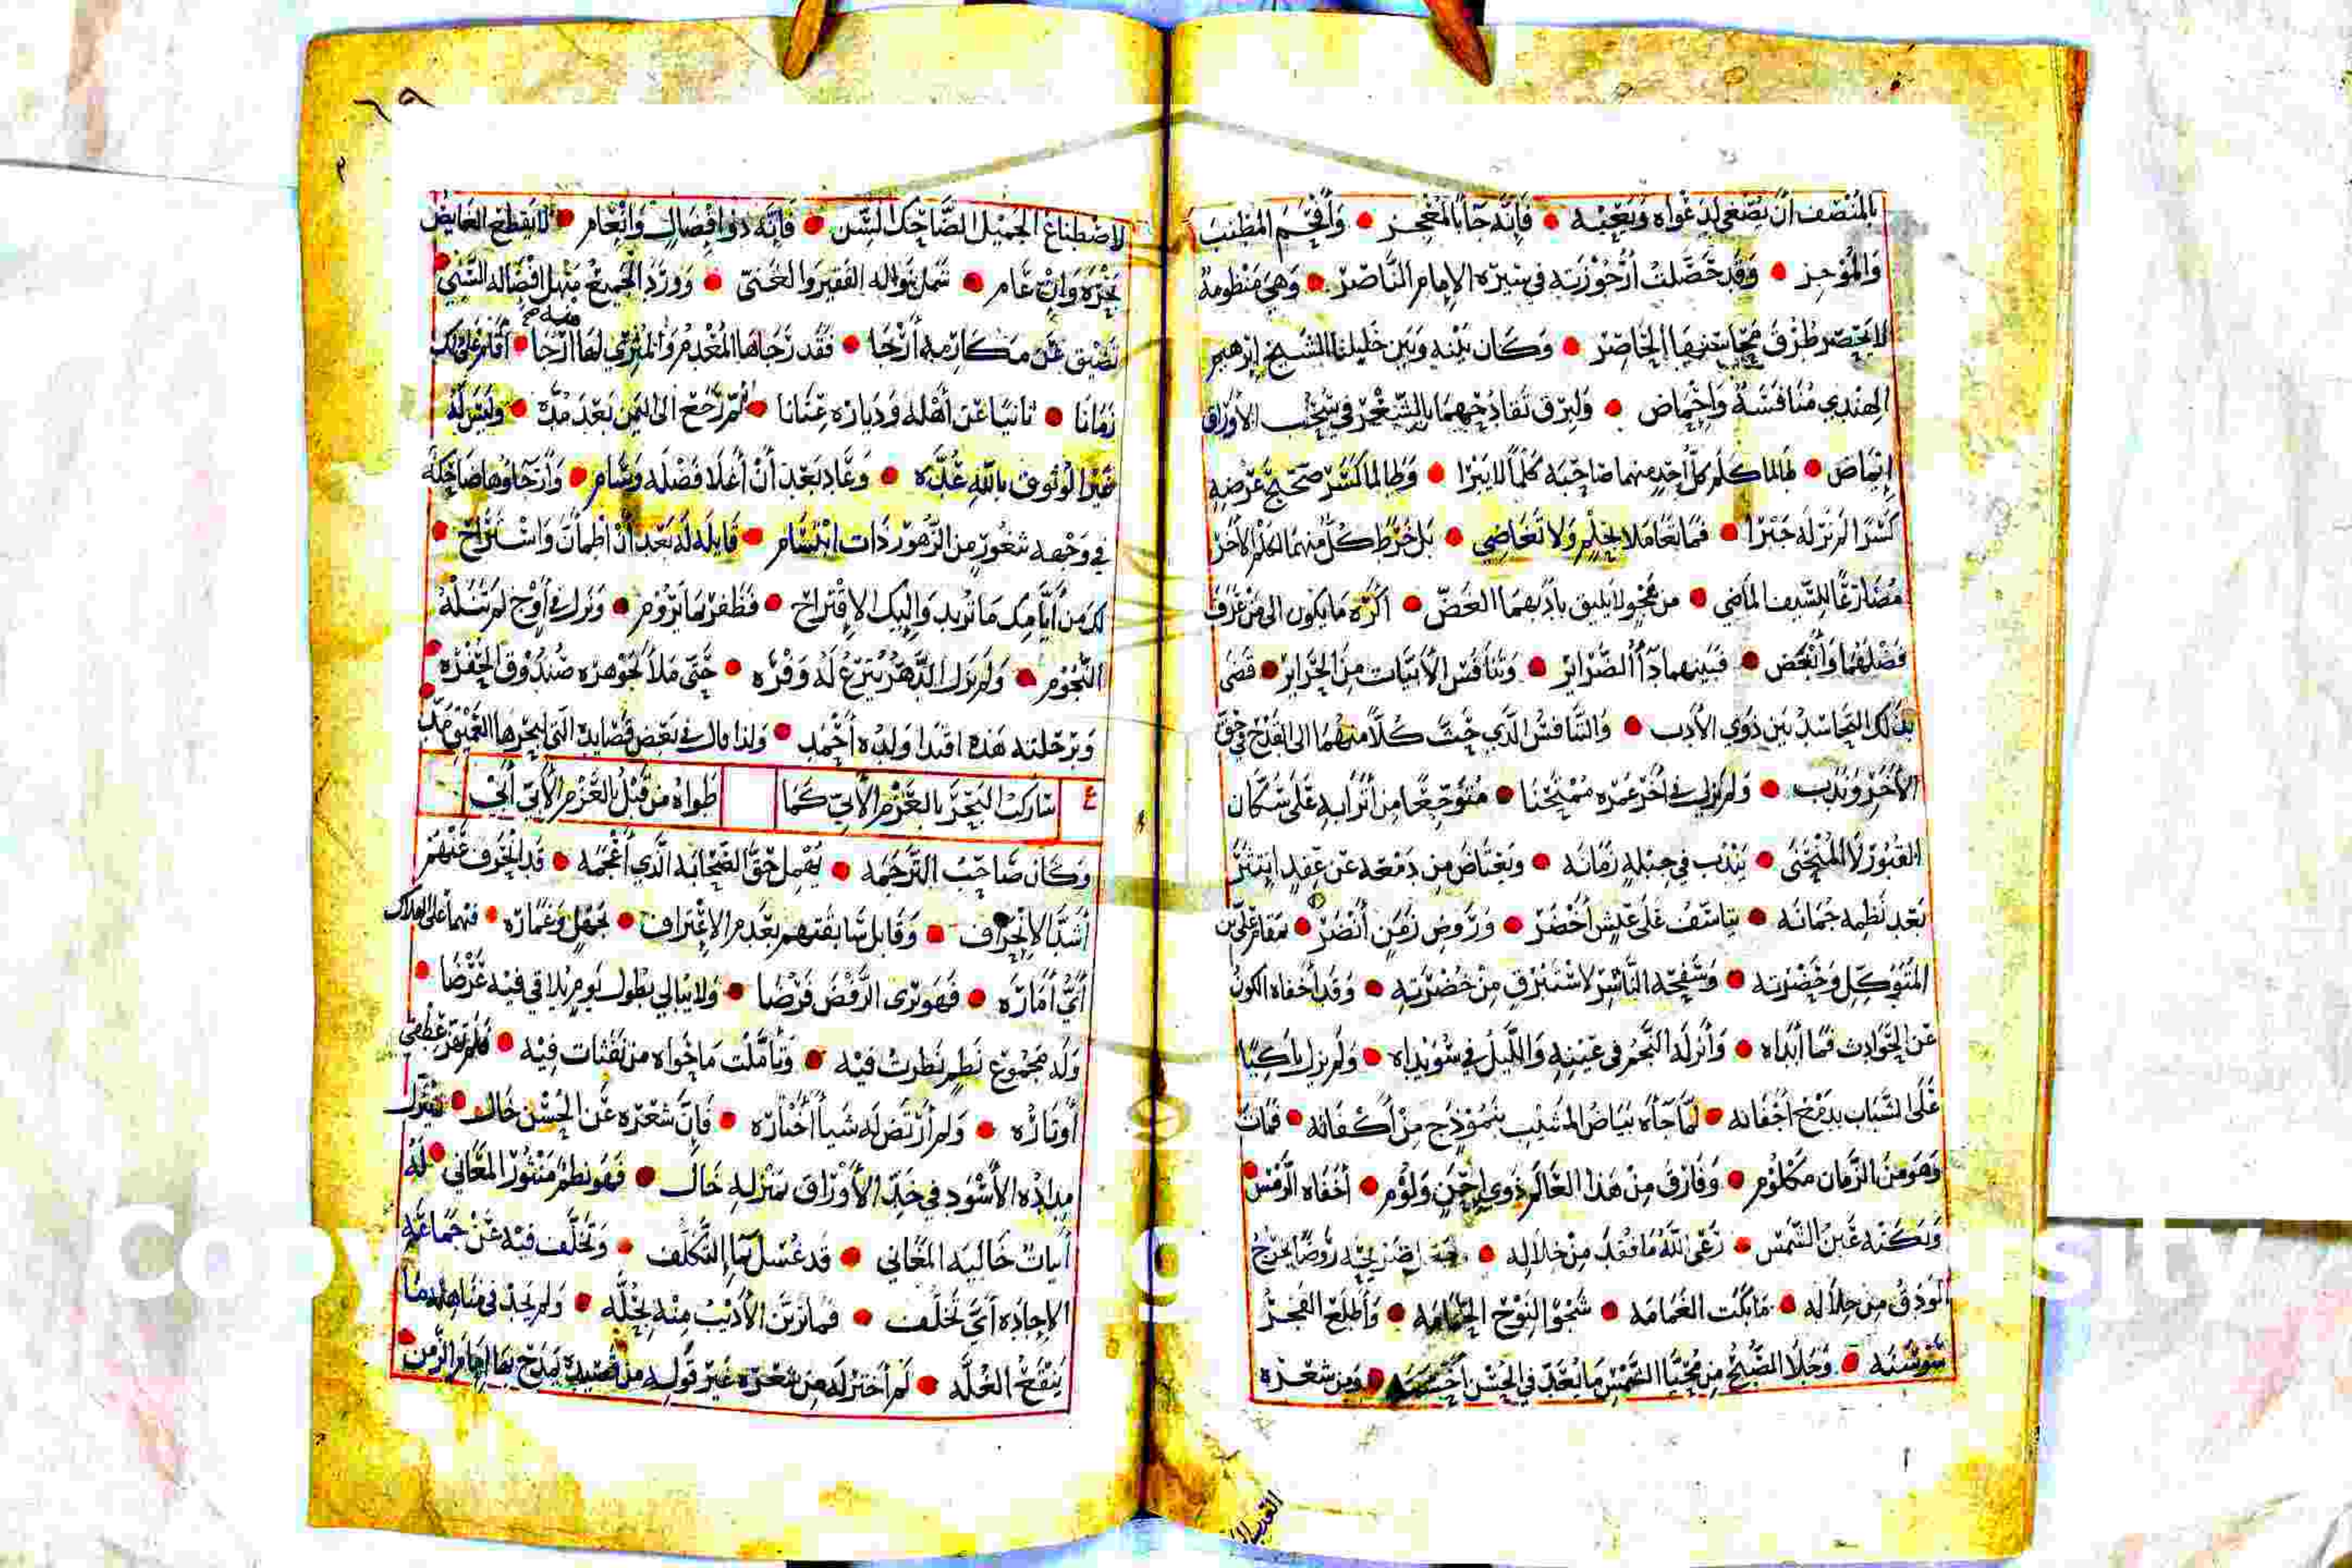 بالمنصف ان يصغي لدعواه ويعجبه • فانه جاء بالمعجز • وافحم المطنب
والموجز • وقد حصلت ارجوزته في سيرة الامام الناصر • وهي منظومة
لا يحصر طرف محاسنها الحاصر • وكان بينه وبين خليلنا الشيخ ابرهيم
الهندي منافسة واحماض • ولبرق تقادحهما بالشعر في سحب الاوراق
ايماض • طالما كلم كل احد منهما صاحبه كلما لا يبرا • وطالما كسر صحيح عرضه
كسرا لم نر له جبرا • فما تعاملا بحلم ولا تغاضي • بل خرط كل منهما لكلم الاخر
مضارعا للسيف الماضي • من هجو لا يليق بادبهما الغض • اكره ما يكون الى من عرف
فضلهما وانغض • فبينهما دآء الضراير • وتنافس الابيات من الحراير • قضى
بذلك التحاسد بين ذوي الادب • والتنافس الذي حث كلا منهما الى القدح في حق
الاخر وندب • ولم يزل في اخر عمره ممتحنا • متوجعا من اترابه على سكان
القبور لا المنحنى • يندب في حيله زمانه • ويعتاض من دمعه عن عقد انتثر
بعد نظمه جمانه • يتاسف على عيش اخضر • وروض زمن انضر • بمقام علي بن
المتوكل وحضرته • وسفحه الناشر لاستبرق من خضرته • وقد اخفاه الكون
عن الحوادث فما ابداه • وانزله النجم في عينه والليل في سويداه • ولم يزل باكيا
على الشباب بدمع اجفانه • لما جآءه بياض المشيب بنموذج من اكفانه • فمات
وهو من الزمان مكلوم • وفارق من هذا العالم ذوي احن ولوم • اخفاه الرمس
وبكته عين الشمس • رعى الله ما فقد من خلاله • ضريحه روضا يخرج
الودق من خلاله • ما بكت الغمامه • شجوا لنوح الحمامه • واطلع الفجر
سوسنه • وجلا الصبح من محيا الشمس ما يعد في الحسن احسنه • ومن شعره
٦٩
لاصطناع الجميل الضاحك السن • فانه ذو افضال وانعام • لا ينقطع الفايض
بحره وان عام • شمل نواله الفقير والغني • وورد الجميع منهل افضاله السني •
تضيق عن مكارمه ارجا • فقد رجاها المعدم والمثري لها ارجا • اقام على ذلك
زمانا • ثانيا عن اهله ودياره عنانا • ثم رجع الى اليمن بعد مدة • وليس له
غير الوثوق بالله عده • وعاد بعد ان اعلا فضله وسام • وارجاوها ضاحكة
في وجهه ثغور من الزهور ذات ابتسام • قايلة له بعد ان اطمأن واستراح •
لك من ايامك ما تريد واليك الاقتراح • فظفر بما يروم • ونزل في اوج لم تنله
النجوم • ولم يزل الدهر يترع له وفره • حتى ملا بجوهره صندوق الحفره •
وبرحلته هذه اقتدا ولده احمد • ولذا قال في بعض قصايده التي بحرها العميق مد
ساركب البحر بالعزم الابي كما
طواه من قبل بالعزم الابي ابي
وكان صاحب الترجمه • يهمل حق الصحابة الذي اعجمه • قد انحرف عنهم
اشد الانحراف • وقابل سابقتهم بعدم الاعتراف • بجهل وغماره • فهما على الهلاك
اي اماره • فهو يرى الرفض فرضا • ولا يبالي بطول يوم يلاقي فيه عرضا •
وله مجموع نظم نظرت فيه • وتاملت ما حواه من نفثات فيه • فلم تهز عطفي
اوتاره • ولم ارتض له شيا اختاره • فان شعره عن الحسن خال •
مداده الاسود في خد الاوراق بمنزلة خال • فهو نظم منثور المعاني • له
ابيات خالية المعاني • قد غسل بها التكلف • وتخلف فيه عن جماعة
الاجاده اي تخلف • فما تزين الاديب منه بحله • ولم يجد في مناهله ما
ينقع الغله • لم اختر له من شعره غير قوله من قصيدة يمدح بها امام الزمن